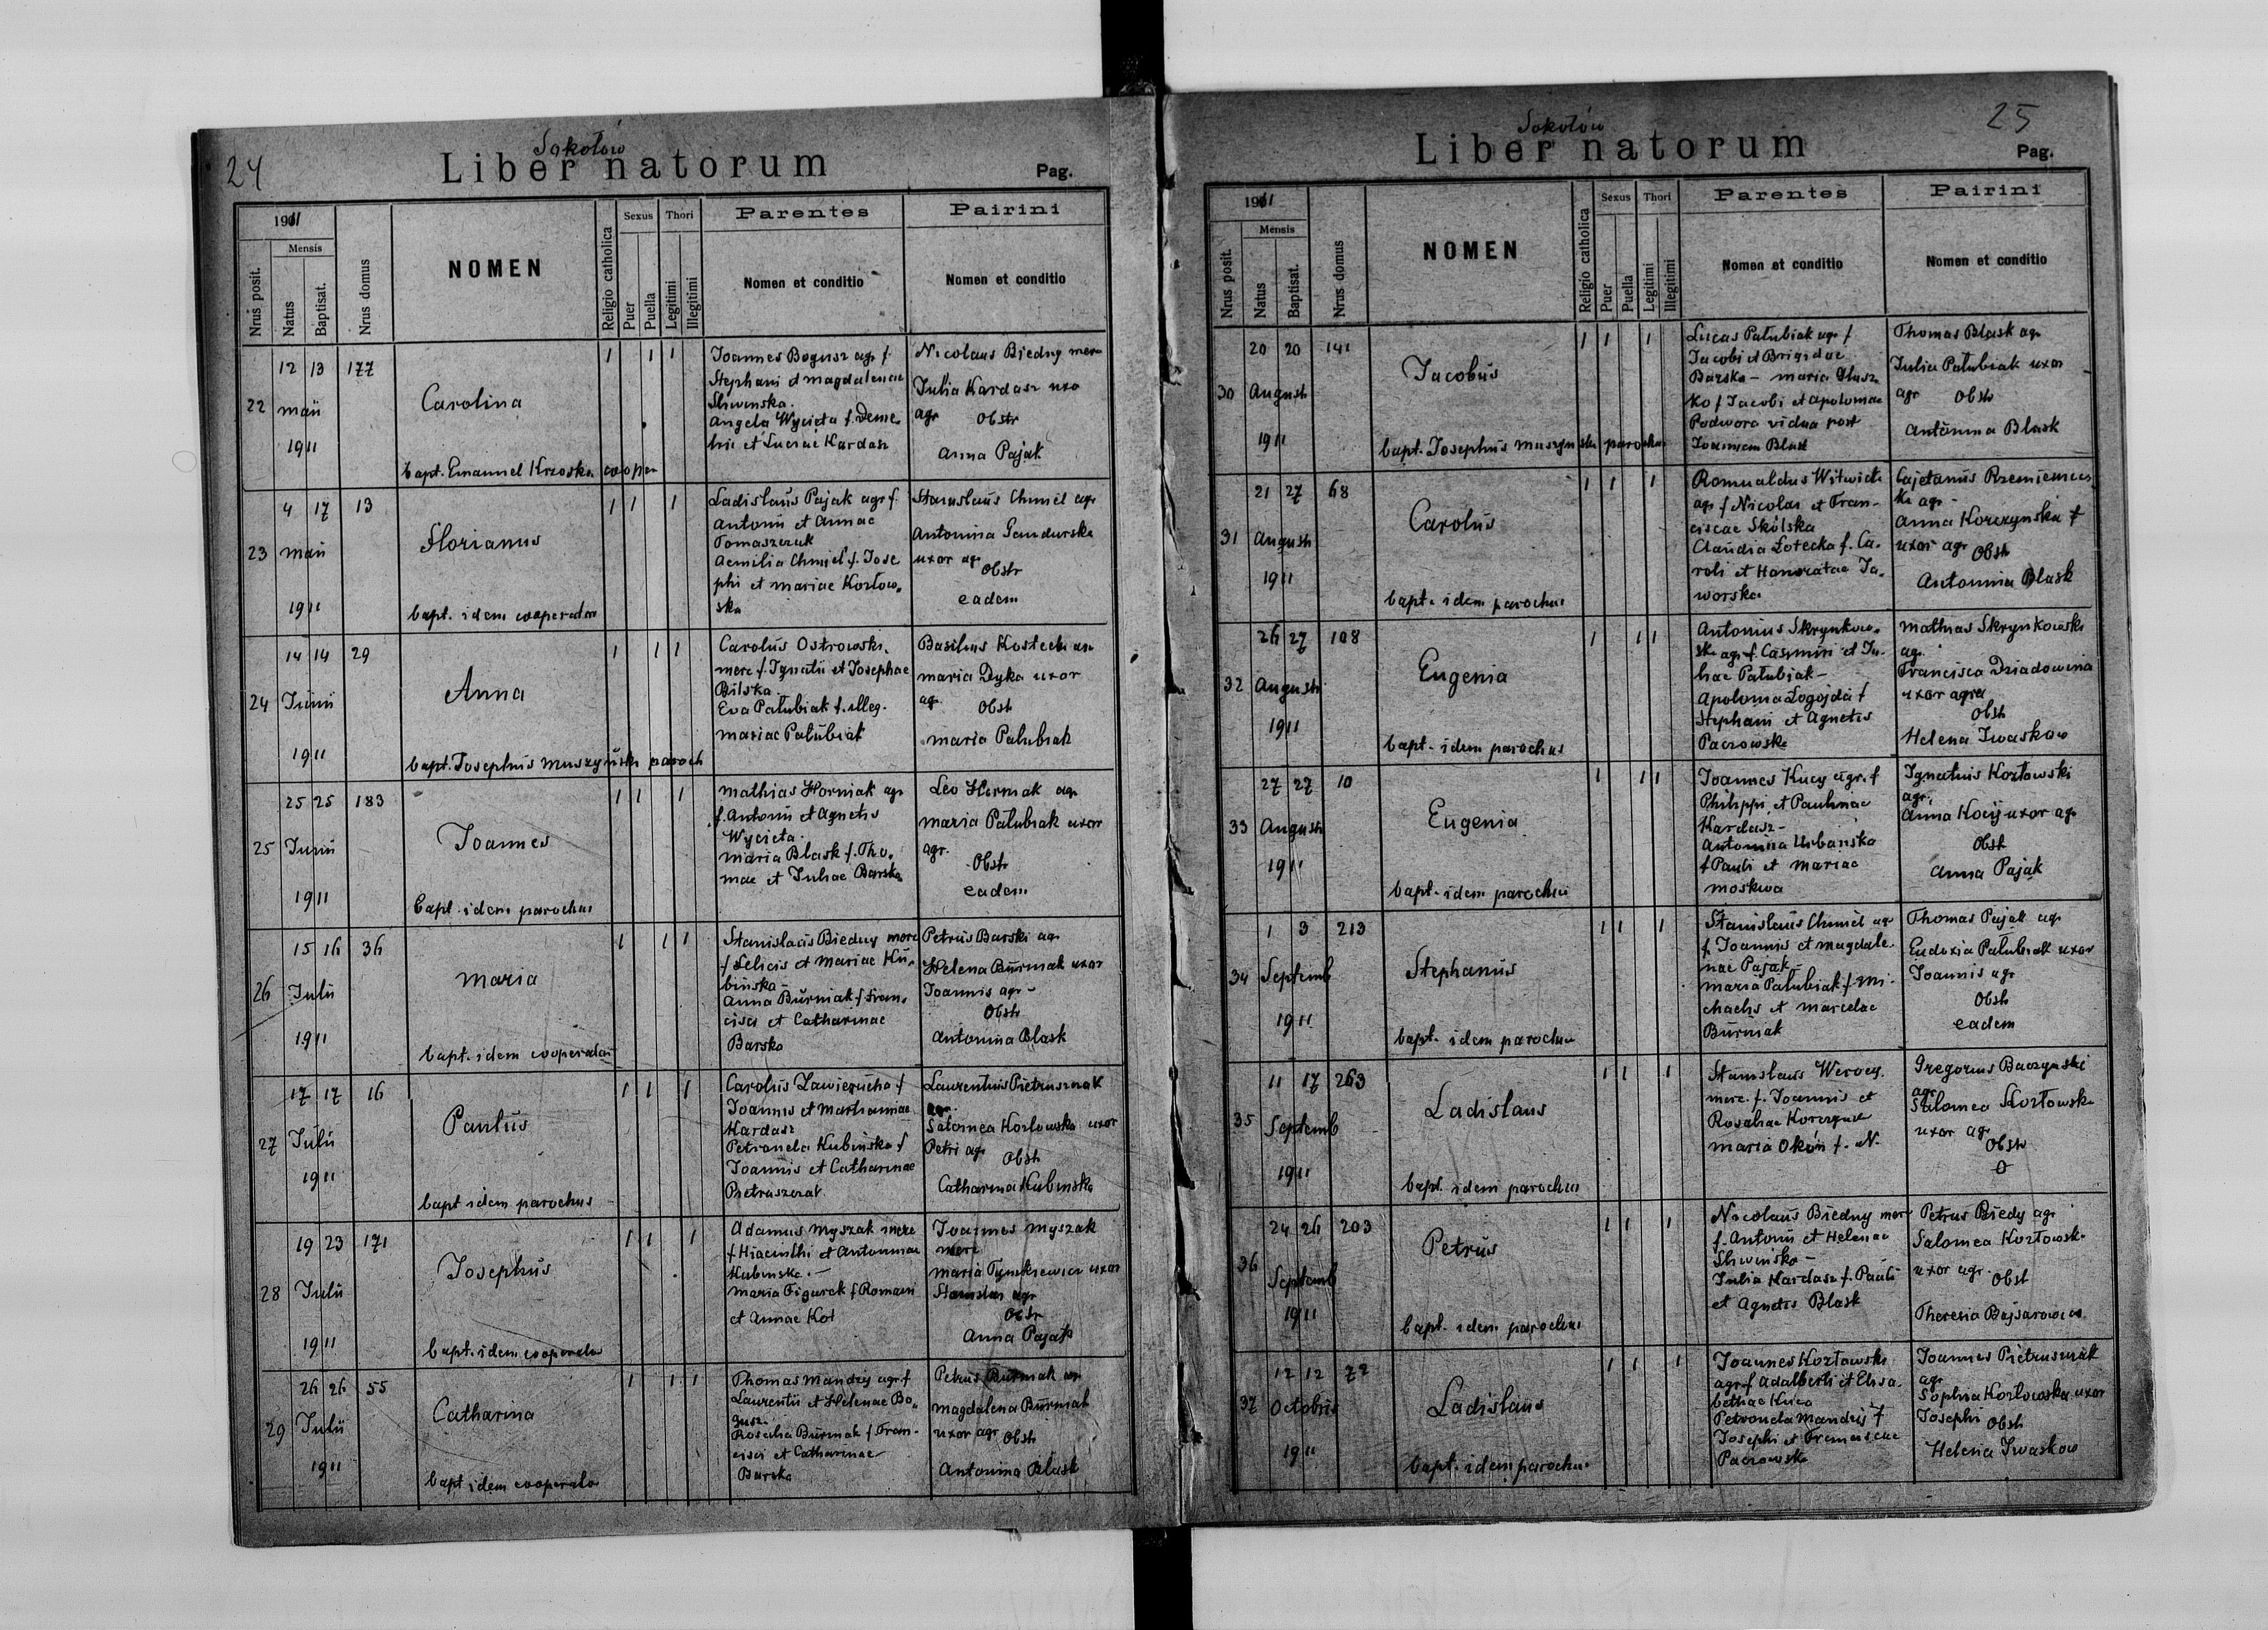 24
Sokołów
Liber natorum
Pag.
1911
Mensis
Nrus posit.
Natus
Baptisat.
Nrus domus
NOMEN
Religio catholica
Sexus
Puer
Puella
Thori
Legitimi
Illegitimi
Parentes
Nomen et conditio
Pairini
Nomen et conditio
22
12 13 177
maii
1911
Carolina
bapt. Emanuel Krzoska cooper
1 1 1
Joannes Bogusz agr f.
Stephani et Magdalenae
Sliwinska.
Angela Wycieta f. Deme
trii et Luciae Kardasz
Nicolaus Biedny merc
Julia Kardasz uxo
agr Obstr
Anna Pajak
23
4 17 13
maii
1911
Florianus
bapt. idem cooperator
1 1 1
Ladislaus Pajak agr f.
Antonii et Annae
Tomaszczuk
Aemilia Chmiel f. Jose
phi et Mariae Kozłow,
ska
Stanislaus Chmiel agr
Antonina Gendurska
uxor agr Obstr
eadem
24
14 14 29
Junii
1911
Anna
bapt. Josephus Muszyński paroch
1 1 1
Carolus Ostrowski,
merc f. Ignatii et Josephae
Bilska
Eva Patubiak f. illeg.
Mariae Patubiak
Basilius Kostecki
Maria Dyka uxor
agr. Obst
Maria Patubiak
25
25 25 183
Junii
1911
Joannes
bapt. idem parochus
1 1 1
Mathias Horniak agr
f. Antonii et Agnetis
Wycieta.
Maria Blask f. Tho,
mae et Juliae Barska
Leo Horniak agr
Maria Patubiak uxor
agr. Obstr
eadem
26
15 16 36
Julii
1911
Maria
bapt. idem cooperator
1 1 1
Stanislaus Biedny merc
f Felicis et Mariae Ku,
binska -
Anna Burniak f Fran,
cisci et Catharinae
Barska
Petrus Barski agr
Helena Burniak uxor
Joannis agr -
Obstr
Antonina Blask
27
17 17 16
Julii
1911
Paulus
bapt idem parochus
1 1 1
Carolus Zawierucha f
Joannis et Mariannae
Kardasz
Petronela Kubinska f
Joannis et Catharinae
Pietruszczak
Laurentius Pietruszczak
agr.
Salomea Kozlowska uxor
Petri agr Obst
Catharina Kubinska
28
19 23 171
Julii
1911
Josephus
bapt. idem cooperator
1 1 1
Adamus Myszak merc
f Hiacinthi et Antoninae
Kubinska. -
Maria Figurek f Romani
et Annae Kot
Joannes Myszak
merc
Maria Tymkiewicz uxor
Stanislai agr
Obstr
Anna Pajak
29
26 26 55
Julii
1911
Catharina
bapt idem cooperator
1 1 1
Thomas Mandzij agr f
Laurentii et Helenae Bo,
gusz -
Rosalia Burniak f Fran-
cisci et Catharinae
Barska
Petrus Burniak agr
Magdalena Burniak
uxor agr Obst
Antonina Blask
25
Sokołów
Liber natorum
Pag.
1911
Mensis
Nrus posit.
Natus
Baptisat.
Nrus domus
NOMEN
Religio catholica
Sexus
Puer
Puella
Thori
Legitimi
Illegitimi
Parentes
Nomen et conditio
Pairini
Nomen et conditio
30
20 20 141
Augusti
1911
Jacobus
bapt. Josephus Muszynski parochus
1 1 1
Lucas Patubiak agr f
Jacobi et Brigidae
Barska - Maria Glusz
ko f Jacobi et Apoloniae
Podwora vidua post
Joannem Blask
Thomas Blask agr
Julia Patubiak uxor
agr Obstr
Antonina Blask
31
21 27 68
Augusti
1911
Carolus
bapt. idem parochus
1 1 1
Romualdus Witwicki
agr f Nicolai et Fran-
ciscae Skólska
Claudia Lotecka f. Ca.
roli et Honoratae Ja,
worska
Cajetanus Rzemieniec
ki agr -
Anna Korczynska f
uxor agr Obstr
Antonina Blask
32
26 27 108
Augusti
1911
Eugenia
bapt. idem parochus
1 1 1
Antonius Skrynkow,
ski agr f. Casimiri et Ju-
liae Patubiak -
Apolonia Łogojda f
Stephani et Agnetis
Paczowska
Mathias Skrynkowski
agr.
Francisca Dziadowina
uxor agra
Obstr
Helena Iwaskow
33
27 27 10
Augusti
1911
Eugenia
bapt. idem parochus
1 1 1
Joannes Kucy agr. f
Philippi et Paulinae
Kardasz -
Antonina Urbanska
f Pauli et Mariae
Moskwa
Ignatius Kozłowski
agr.
Anna Kocij uxor agr
Obst
Anna Pajak
34
1 3 213
Septemb
1911
Stephanus
bapt. idem parochus
1 1 1
Stanislaus Chmiel agr
f Joannis et Magdale.
nae Pajak -
Maria Patubiak f Mi-
chaelis et Marcelae
Burniak
Thomas Pajak agr
Eudoxia Patubiak uxor
Joannis agr
Obstr
eadem
35
11 17 263
Septemb
1911
Ladislaus
bapt. idem parochus
1 1 1
Stanislaus
merc. f. Joannis et
Rosaliae
Maria Okoń f. N.
Gregorius Baczynski
agr
Salomea Kozłowska
uxor agr
Obstr
O
36
24 26 203
Septemb
1911
Petrus
bapt. idem parochus
1 1 1
Nicolaus Biedny merc
f. Antonii et Helenae
Sliwinska -
Julia Kardasz f. Pauli
et Agnetis Blask
Petrus Biedy agr
Salomea Kozłowska
uxor agr. Obst
Theresia Bajsarowicz
37
12 12 72
Octobris
1911
Ladislaus
bapt. idem parochus
1 1 1
Joannes Kozłowski
agr f Adalberti et Elisa.
bethae
Petronela Mandzij f
Josephi et Franciscae
Paczowska
Joannes Pietruszczak
agr
Sophia Kozłowska uxor
Josephi Obst
Helena Iwaskow